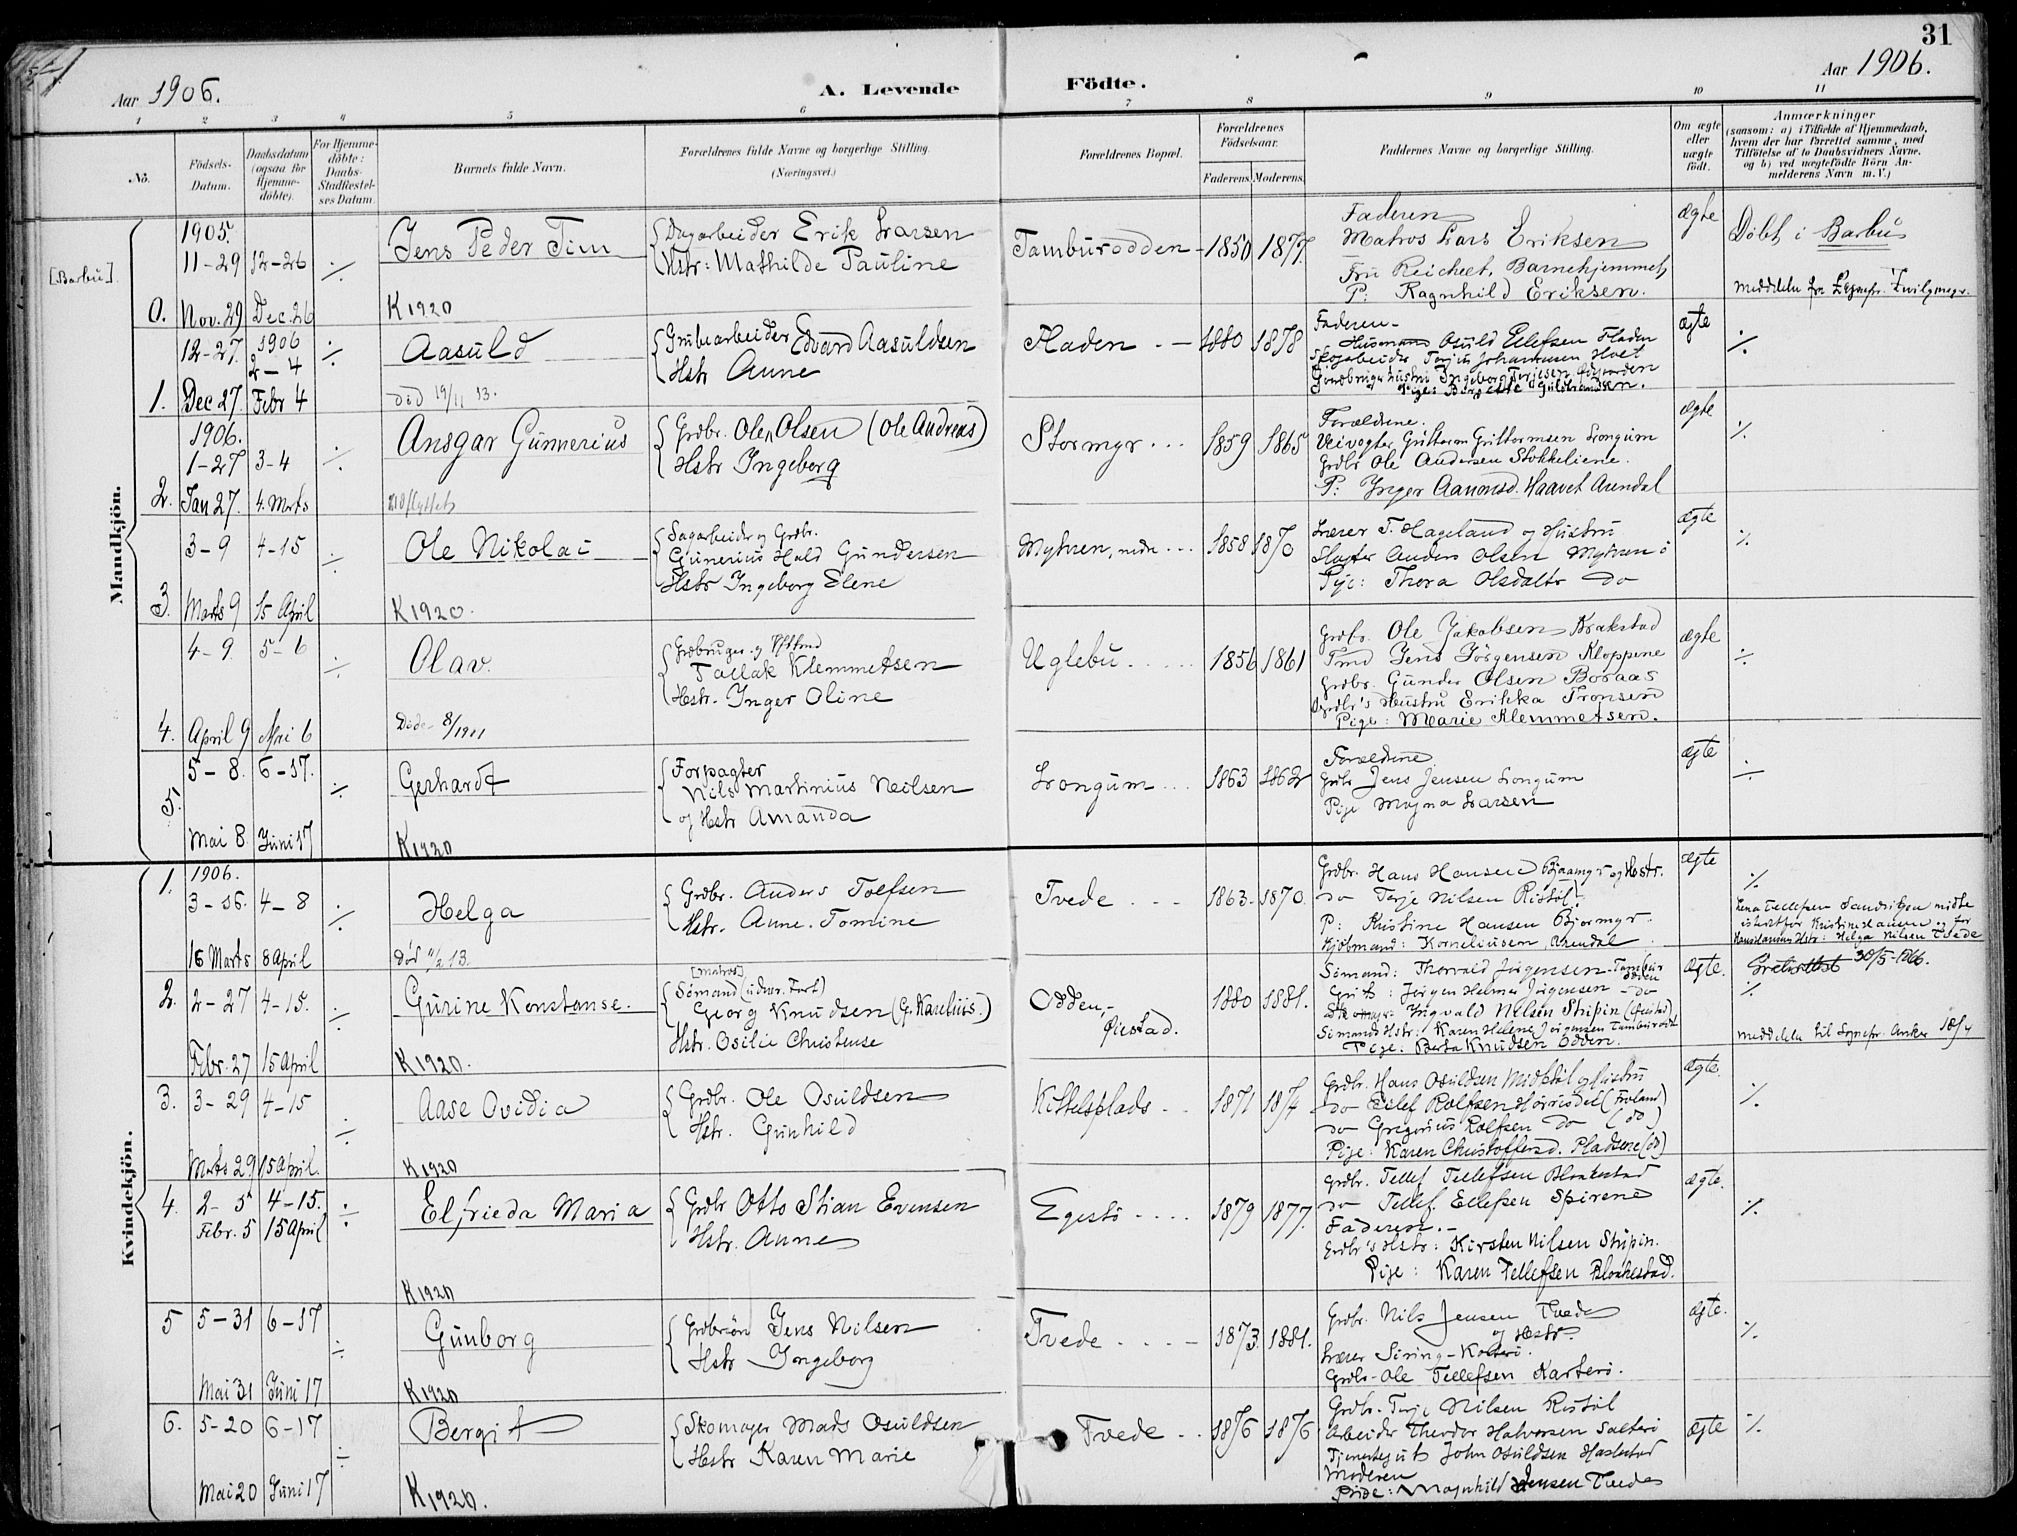 31
Aar 1906.
A. Levende
Födte.
Aar 1906.
1 2 3 4 5 6 7 8 9 10 11
Nö.
Födsels-
Datum.
Daabsdatum
(ogsaa for
Hjemme-
döbte).
For Hjemme-
döbte:
Daabs-
Stadfæstel-
ses Datum.
Barnets fulde Navn.
Forældrenes fulde Navne og borgerlige Stilling.
(Næringsvei.)
Forældrenes Bopæl.
Forældrenes
Födselsaar.
Faderens. Moderens.
Faddernes Navne og borgerlige Stilling.
Om ægte
eller
uægte
födt.
Anmærkninger
(saasom: a) i Tilfælde af Hjemmedaab,
hvem der har forrettet samme, med
Tilföielse af to Daabsvidners Navne,
og b) ved uægtefödte Börn An-
melderens Navn m. V.)
Mandkjön.
[Barbu]
0.
1905.
11-29 12-26
Nov. 29 Dec. 26
÷
Jens Peder Tim
K 1920
Dagarbeider Erik Larsen
Hstr: Mathilde Pauline
Tamburodden - 1850 1877.
Faderen
Matros Lars Eriksen
Fru Reichelt, Barnehjemmet
P: Ragnhild Eriksen.
ægte
Döbt i Barbu
1.
12-27. 1906
2-4
Dec 27. Febr 4
÷
Aasuld
död 19/11 13.
Grubearbeider Edvard Aasuldsen
Hstr Anne
Fladen - 1880 1878
Faderen-
Husmand Osuld Ellefsen Fladen
ægte
÷
2.
1906.
1-27 3-4
Jan 27. 4. Marts
÷
Ansgar Gunnerius
Grdbr. Ole Olsen (Ole Andreas)
Hstr Ingeborg
Stormyr ... 1859 1865
Forældrene.
Veivogter Guttorm Guttormsen Longum
Grdbr Ole Andersen Stokkeliene.
P: Inger Aanonsd. Haavet Arendal
ægte
÷
3.
3-9 4-15
Marts 9 15 April
÷
Ole Nikolai
K 1920.
Sagarbeider og Grdbr.
Gunerius Hald Gundersen
Hstr Ingeborg Elene
Myhren, nedre ... 1858 1870
Lærer T. Hageland og Hustru
Slagter Anders Olsen Myhren
Pige: Thora Olsdatter do
ægte
÷
4.
4-9. 5-6
April 9 Mai 6
÷
Olav.
Döde 8/1911
Tallak Klemmetsen
Hstr. Inger Oline
Uglebu ..... 1856 1861
Grdbr. Ole Jakobsen Krakstad
Tmd Jens Jörgensen Kloppene
Grdbr. Gunder Olsen Boraas
Grdbr's Hustru Erikka Tronsen
Pige: Marie Klemmetsen.
ægte
÷
5.
5-8. 6-17.
Mai 8 Juni 17
÷
Gerhardt
K 1920
Forpagter
Nils Martinius Neilsen
og Hstr Amanda
Longum ... 1863 1862
Forældrene
Grdbr Jens Jensen Longum
Pige Magna Larsen
ægte
÷
Kvindekjön.
1.
1906.
3-16. 4-8
16 Marts 8 April
÷
Helga
död 11/2 13.
Grdbr. Anders Tolfsen
Hstr. Anne Tomine
Tvede ... 1863- 1870.
Grdbr. Hans Hansen Bjaamyr og Hstr.
do Terje Nilsen Ristöl.
P: Kristine Hansen Bjormyr
Kjöbmand: Korneliussen Arendal
ægte
÷
2.
2-27 4-15.
Febr. 27 15 April
÷
Gurine Konstanse.
K 1920.
[Matros]
Georg Knudsen (G. Karelius.)
Hstr. Osilie Christense
Odden,
Öiestad.
1880 1881.
Sömand: Thorvald Jörgensen
Jörgen Helmer Jörgensen - do
Ingvald Nilsen Stupin (Öiestad)
Sömands Hstr: Karen Helene Jörgensen Tamburodd.
Pige: Berta Knudsen Odden.
Ægte.
30/5-1906.
÷
3.
3-29 4-15
Marts 29 15 April.
÷
Aase Ovidia
K 1920
Grdbr. Ole Osuldsen
Hstr. Gunhild
Kittelsplads .. 1871 1874
Grdbr. Hans Osuldsen Midtböl og Hustru
do Ellef Rolfsen Hörrisdal (Froland)
do Gregorius Rolfsen do (do)
Pige: Karen Christoffersd. Pladsene (do)
Ægte.
÷
4.
2-5 4-15.
Febr. 5 15 April
÷
Elfrieda Maria
K 1920
Grdbr Otto Stian Evensen
Hstr. Anne
Egestö .... 1879 1877.
Grdbr. Tellef Tellefsen Blakkestad
do Tellef Ellefsen Spirene
Faderen.-
Grdbr's Hstr: Kirsten Nilsen Stupin.
Pige: Karen Tellefsen Blakkestad.
ægte.
÷
5
5-31 6-17
Mai 31 Juni 17
÷
Gunborg
K 1920
Grdbrsön Jens Nilsen
Hstr Ingeborg
Tvede .... 1873. 1881.
Grdbr. Nils Jensen Tvede
og Hstr.
Grdbr. Ole Tellefsen
ægte.
÷
6.
5-20 6-17
Mai 20 Juni 17
÷
Bergit
K 1920.
Skomager Mads Osuldsen
Hstr Karen Marie
Tvede .. 1876 1876
Grdbr. Terje Nilsen Ristöl
Arbeider Theodor Halvorsen Salteröd
Tjenestegut John Osuldsen Haslestad
Moderen
Pige: Magnhild Jensen Tvede
Ægte
÷